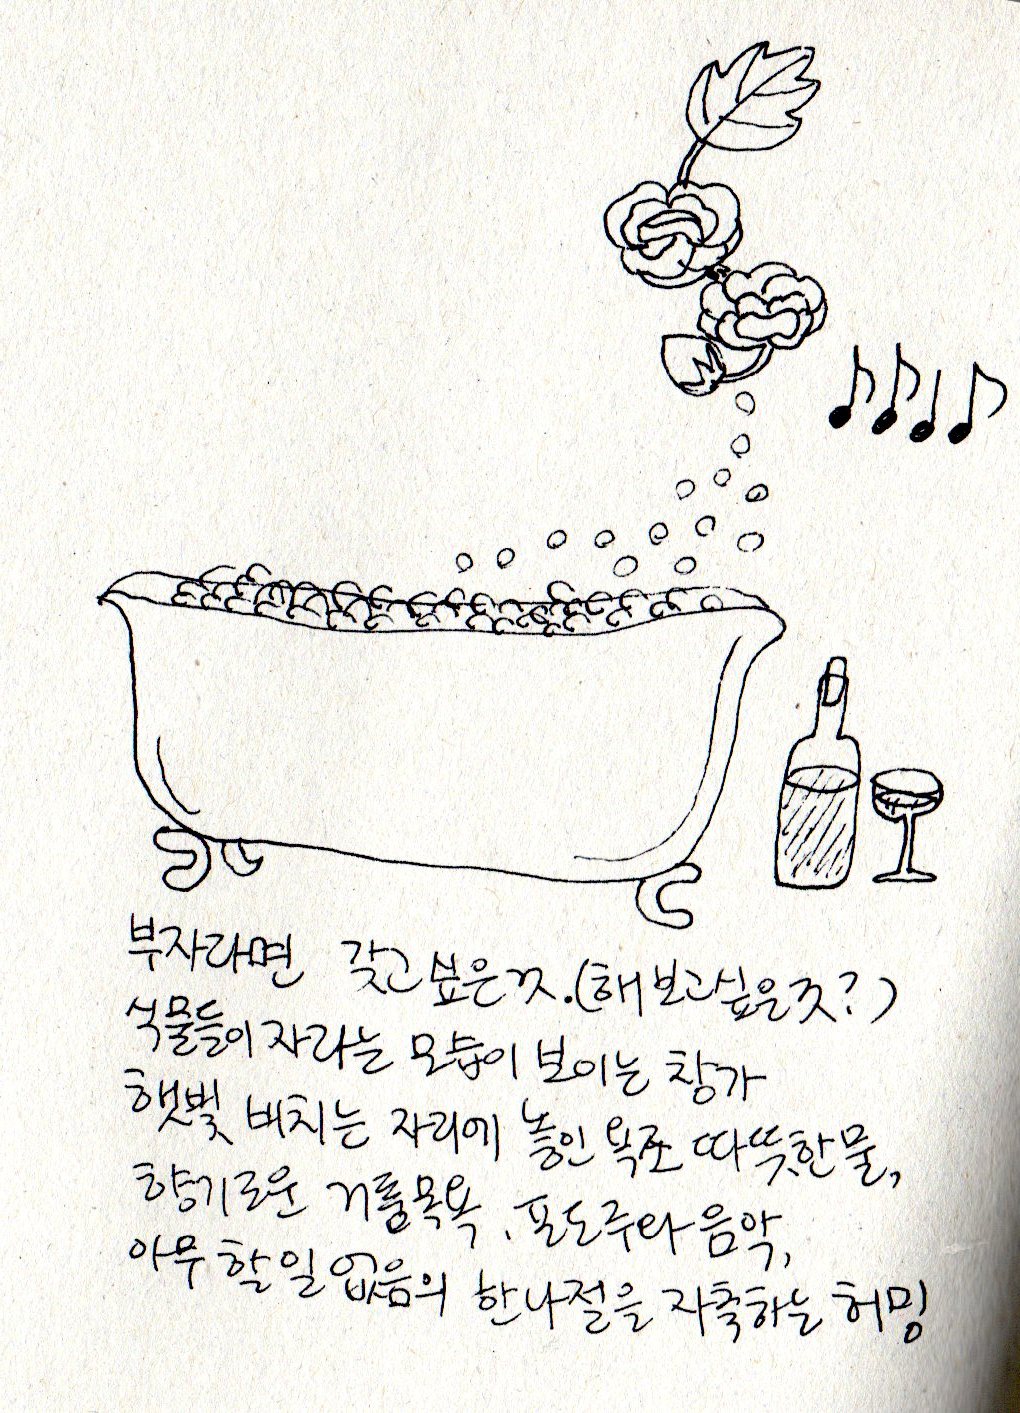 부자라면 갖고 싶은것.(해보고싶은것?)
식물들이 자라는 모습이 보이는 창가
햇빛 비치는 자리에 놓인 욕조 따뜻한 물,
향기로운 거품목욕, 포도주와 음악,
아무 할 일 없음의 한나절을 자축하는 허밍